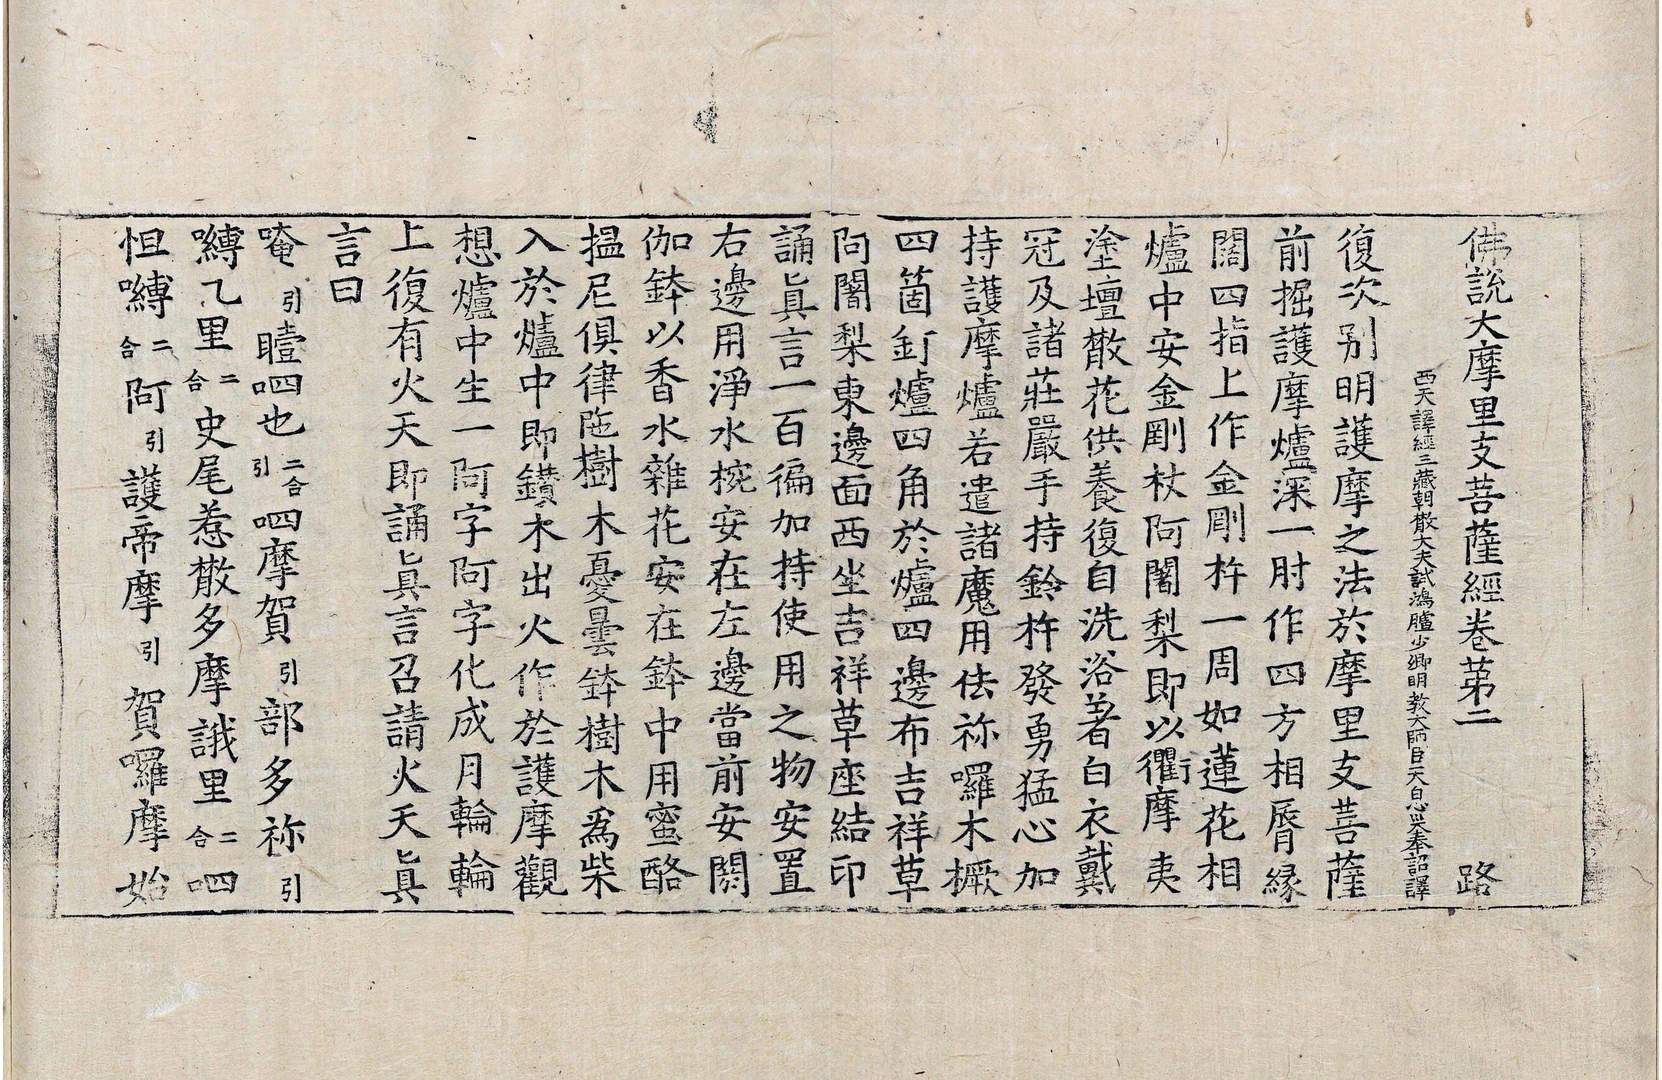 佛說大摩里支菩薩經卷第二 路
西天譯經三藏朝散大夫試鴻臚少卿明教大師臣天息災奉詔譯
復次別明護摩之法於摩里支菩薩
前掘護摩爐深一肘作四方相脣緣
闊四指上作金剛杵一周如蓮花相
爐中安金剛杖阿闍梨即以衢摩夷
塗壇散花供養復自洗浴著白衣戴
冠及諸莊嚴手持鈴杵發勇猛心加
持護摩爐若遣諸魔用佉祢囉木橛
四箇釘爐四角於爐四邊布吉祥草
向闍梨東邊面西坐吉祥草座結印
誦眞言一百徧加持使用之物安置
右邊用淨水椀安在左邊當前安閼
伽鉢以香水雜花安在鉢中用蜜酪
揾尼俱律陁樹木憂曇鉢樹木爲柴
入於爐中即鑚木出火作於護摩觀
想爐中生一阿字阿字化成月輪輪
上復有火天即誦眞言召請火天眞
言曰
唵引曀呬也二合引呬摩賀引部多祢引
嚩乙里二合史尾惹散多摩誐里二合呬
怛嚩二合阿引護帝摩引賀囉摩始